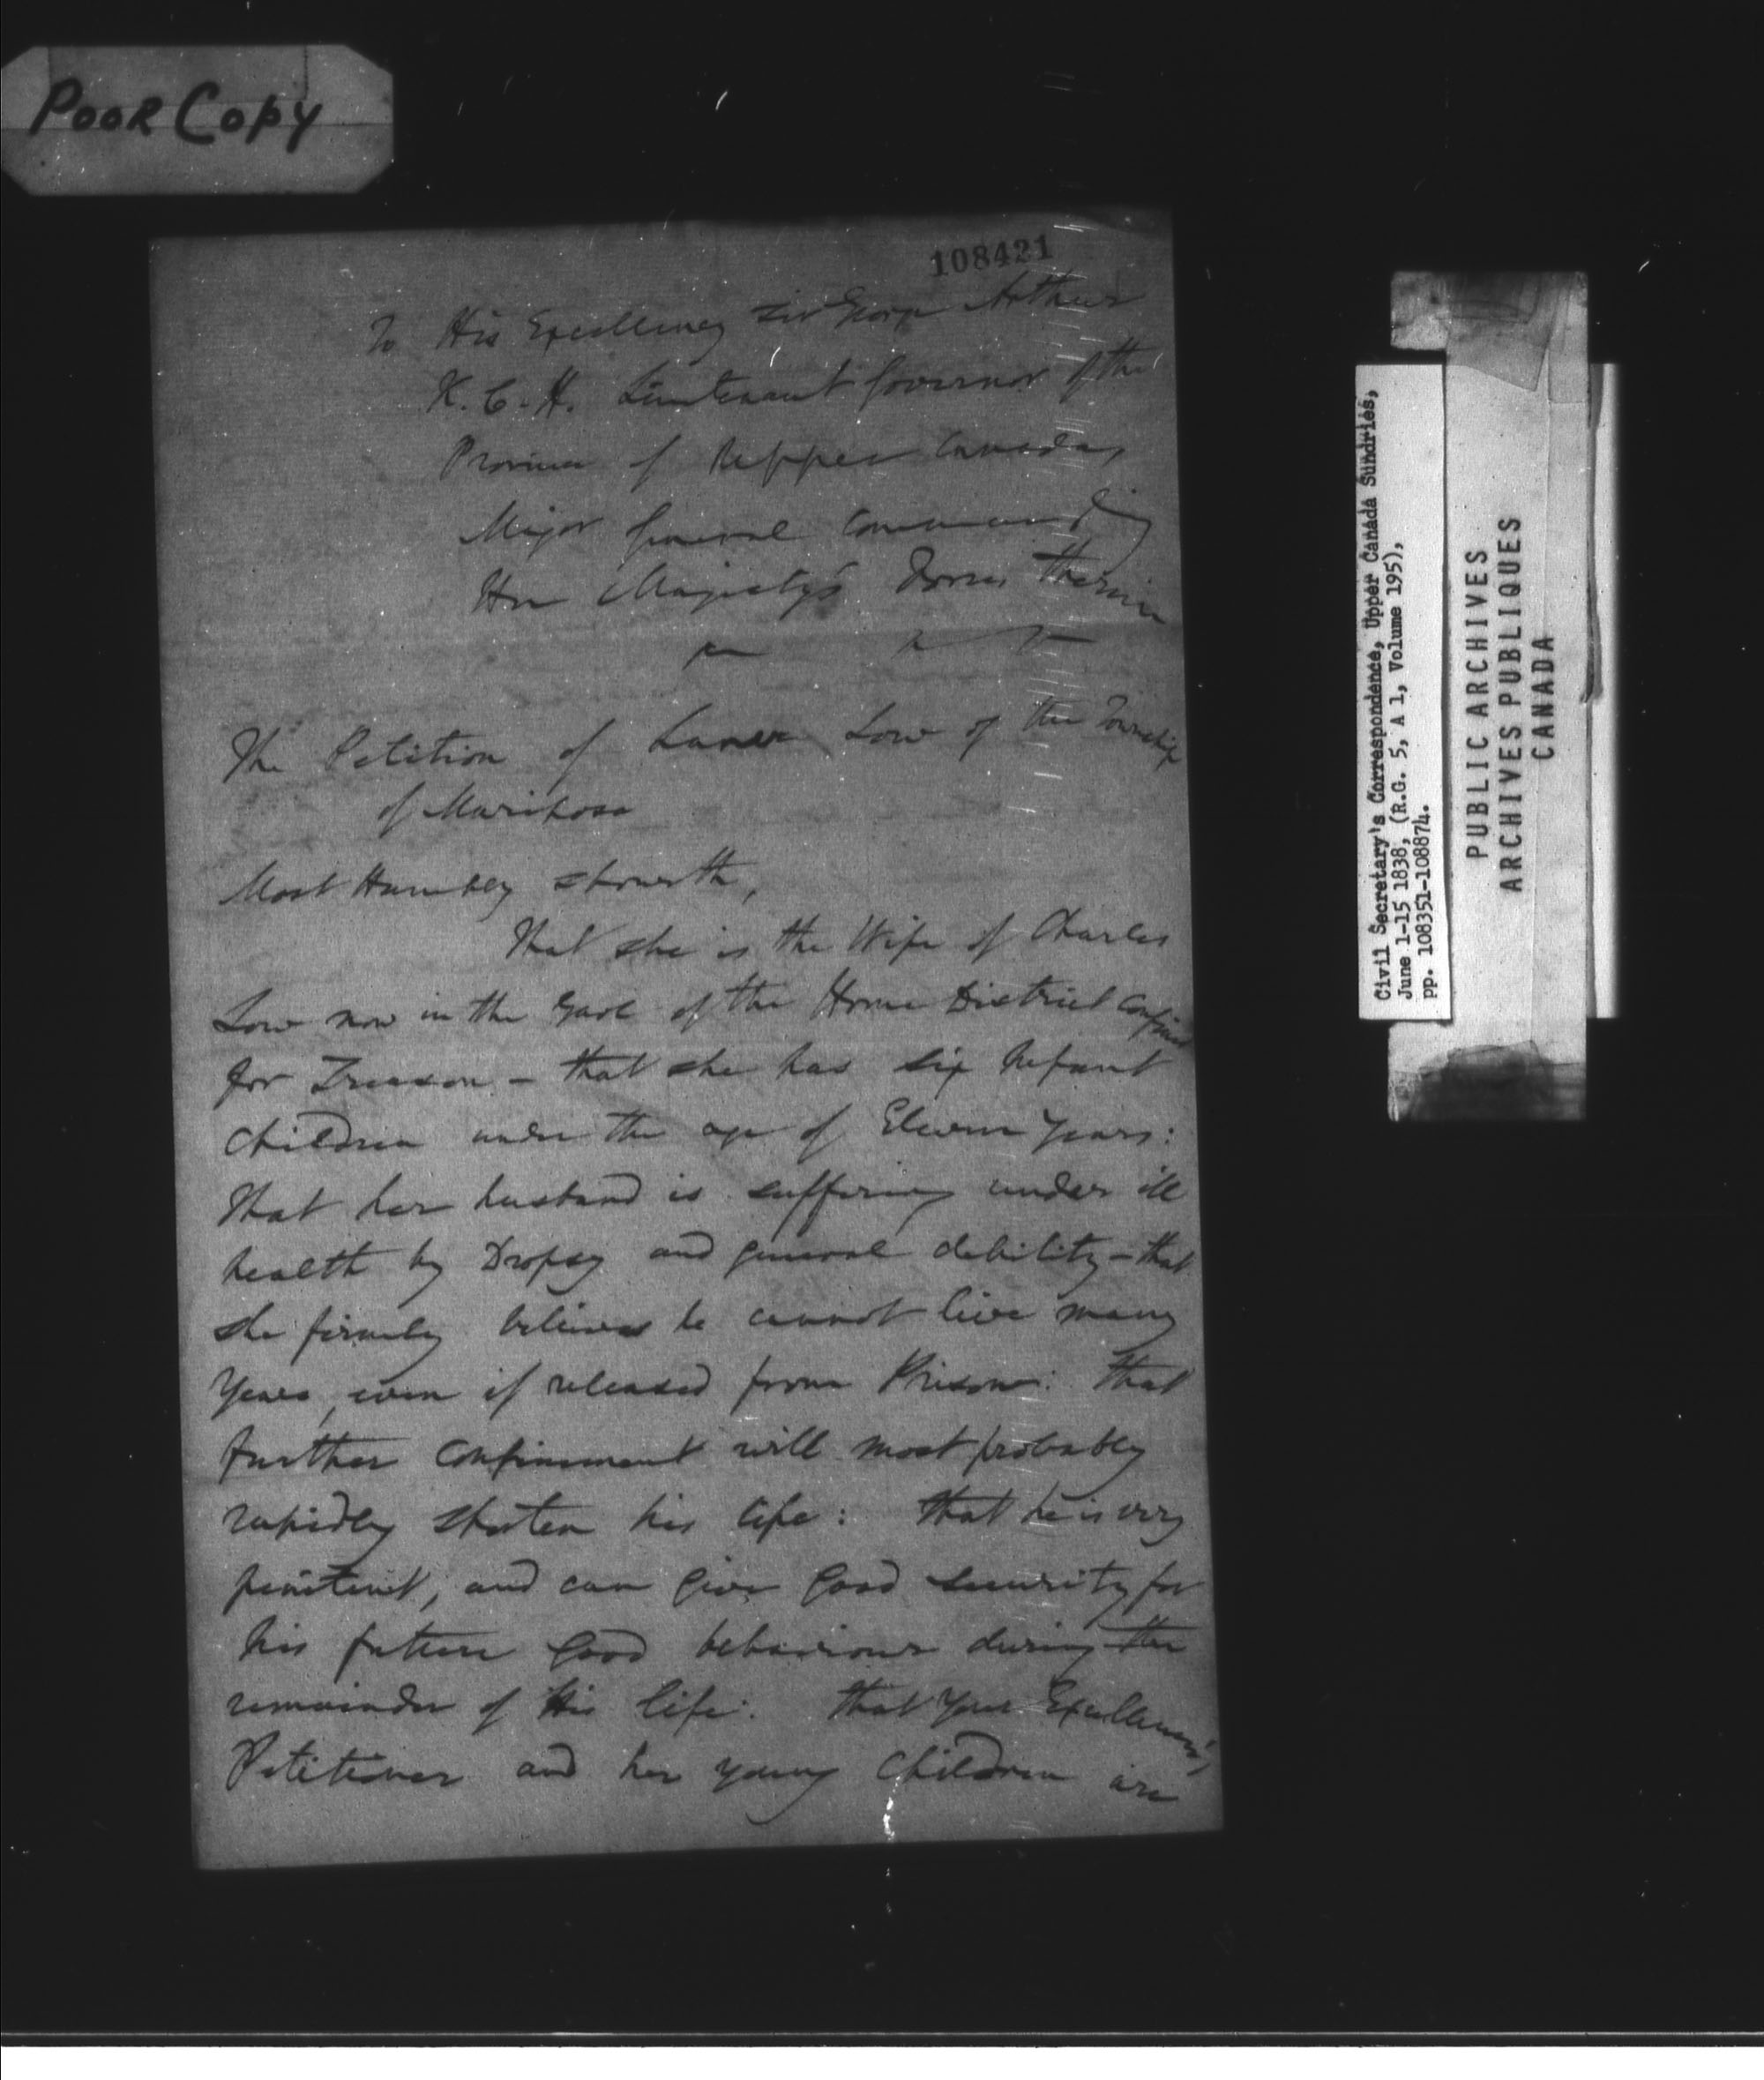 Poor Copy
108421
To His Excellency Sir George Arthur
K. C. H. Lieutenant Governor of the
Province of Upper Canada,
Major General Commanding
Her Majesty's Forces therein
The Petition of Low of the Township
of Mariposa
Most Humbly sheweth,
That she is the Wife of Charles
Low now in the Gaol of the Home District confined
for Treason - that she has six Infant
children under the age of Eleven Years:
that her husband is suffering under ill
health by Dropsy and general debility - that
she firmly believes he cannot live many
Years, even if released from Prison: that
further confinement will most probably
rapidly shorten his life: that he is very
penitent, and can give good security for
his future good behaviour during the
remainder of His life: that Your Excellency's
Petitioner and her young children are
Civil Secretary's Correspondence, Upper Canada Sundries,
June 1-15 1838, (R.G. 5, A 1, Volume 195),
pp. 108351-108874.
PUBLIC ARCHIVES
ARCHIVES PUBLIQUES
CANADA